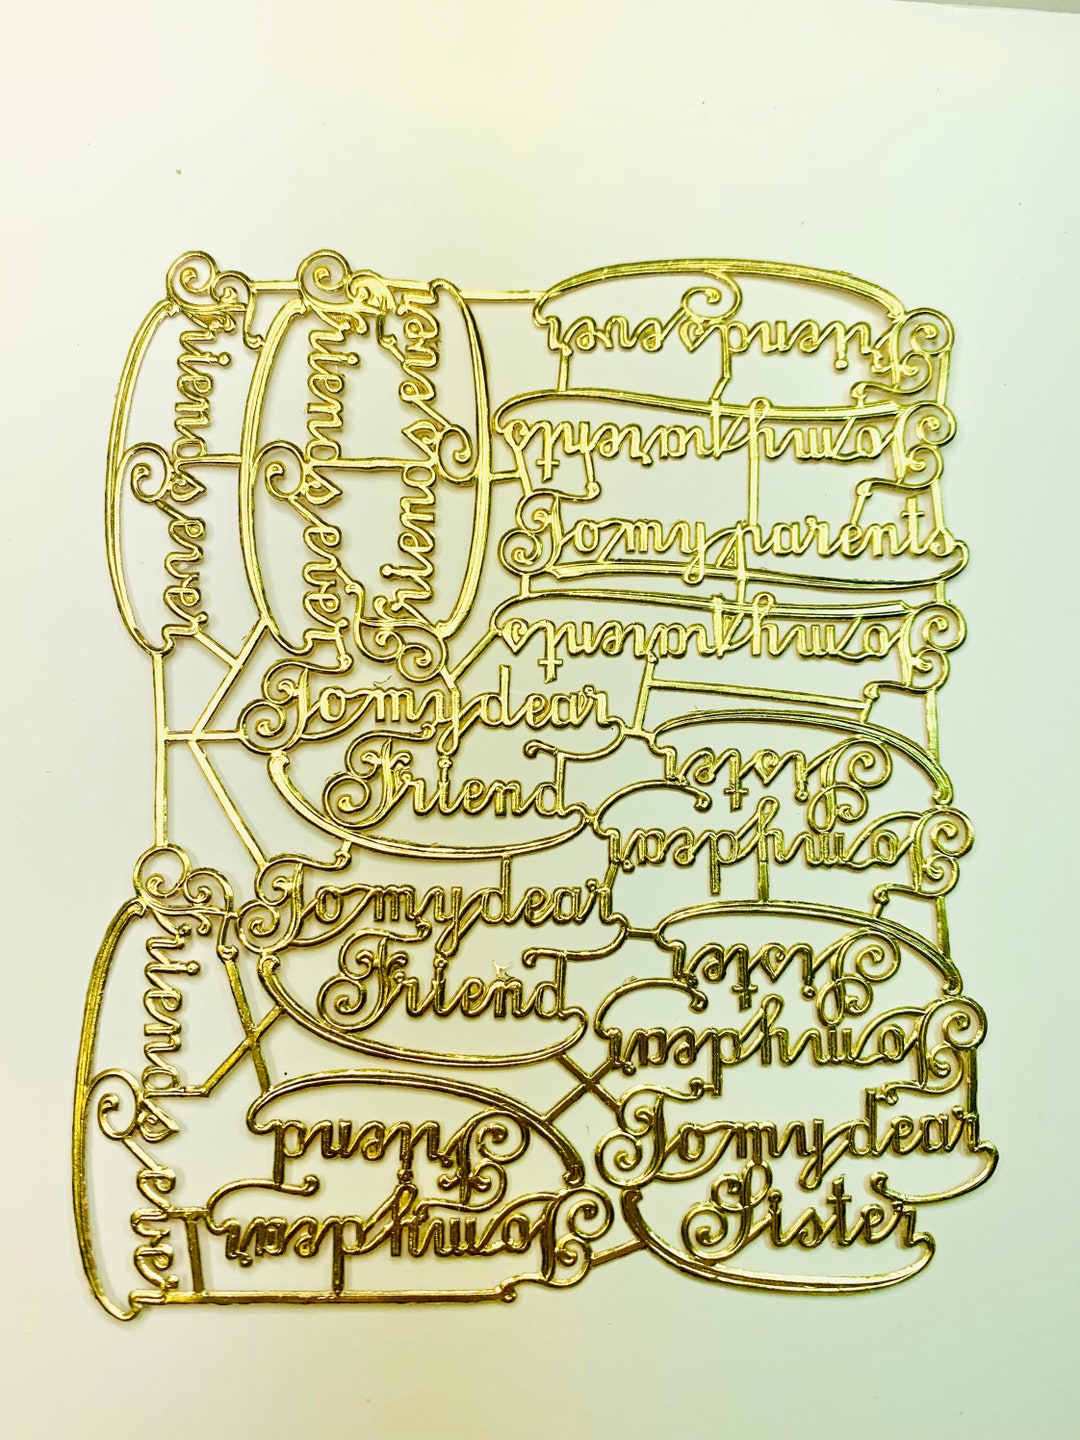 Friends ever
Friends ever
Friends ever
Friends ever
To my parents
To my parents
To my parents
To my dear
Friend
To my dear
Sister
To my dear
Friend
To my dear
Sister
Friends ever
To my dear
Friend
To my dear
Sister